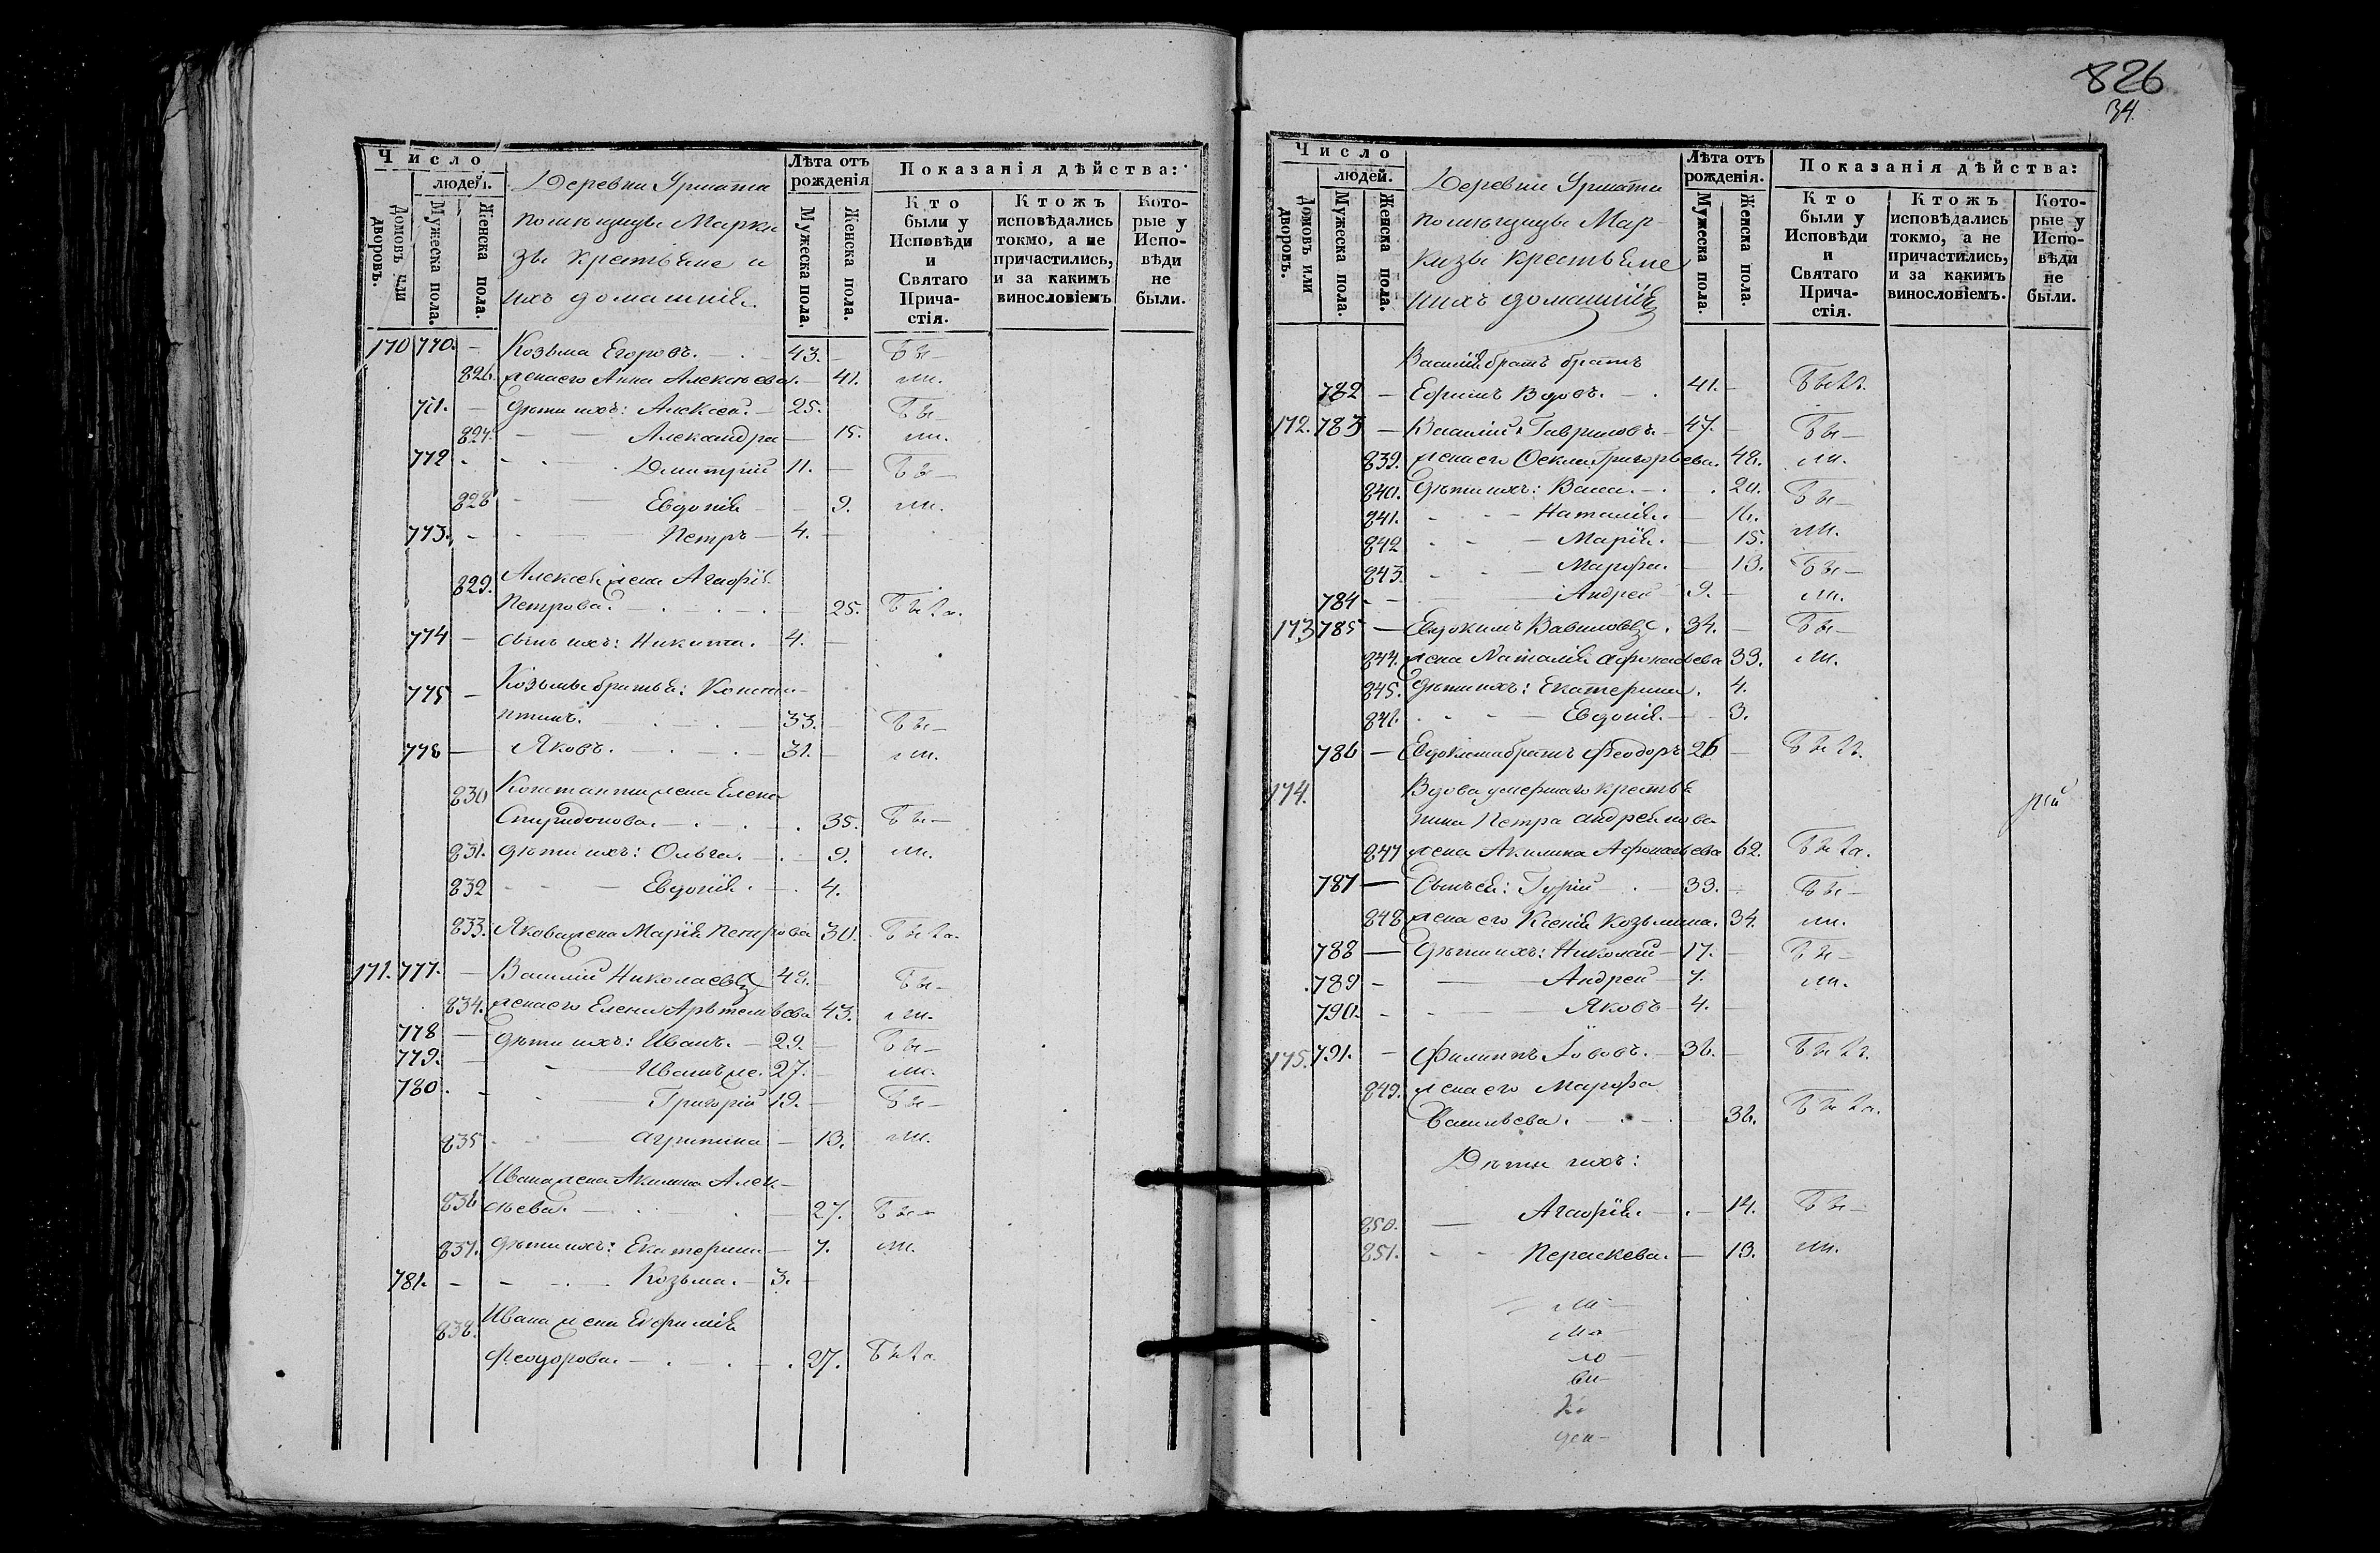 826
34.
Число
людей.
Домовъ или дворовъ.
Мужеска пола.
Женска пола.
Деревни Урмаѣти
помѣщицы Марки
зы крестьяне и
ихъ домашнія.
Лѣта отъ рожденія
Мужеска пола.
Женска пола.
Показанія дѣйства:
Кто были у Исповѣди и Святаго Причастія.
Ктожъ исповѣдались токмо, а не причастились, и за какимъ винословіемъ
Которые у Исповѣди не были.
170 770. — Козьма Егоровъ. 43. — Бы—
826. жена его Анна Алексѣева. — 41. ли.
771. — дѣти ихъ: Алексей. 25. Бы—
827. — Александра — 15. ли.
772 — Димитрій 11. — Бы—
828 — Евдокія — 9. ли.
773. — Петръ — 4. —
829. Алексея жена Агафія
Петрова. — 25. Была.
774 — сынъ ихъ: Никита. 4. —
775 — Козьмы братья: Конста-
нтинъ. — 33. Бы—
776 — Яковъ. — 31. — ли.
830 Константина жена Елена
Спиридонова. — 35. Бы—
831. дѣти ихъ: Ольга. — 9. ли.
832 — Евдокія. — 4.
833. Якова жена Марія Петрова 30. Была.
171. 777. — Василій Николаевъ 48. — Бы—
834. жена его Елена Артемьева 43. ли.
778 — дѣти ихъ: Иванъ. — 29. — Бы—
779. — Иванъ же. 27. — ли.
780. — Григорій 19. — Бы—
835 — Агрипина — 13. ли.
Ивана жена Акилина Алек-
836 сѣева. — 27. Бы—
837. дѣти ихъ: Екатерина — 7. ли.
781. — Козьма. — 3. —
838. Ивана жена Евфимія
Феодорова. — 27. Была.
Число
людей.
Домовъ или дворовъ.
Мужеска пола.
Женска пола.
Деревни Урмаѣти
помѣщицы Мар-
кизы крестьяне
и ихъ домашнія
Лѣта отъ рожденія.
Мужеска пола.
Женска пола.
Показанія дѣйства:
Кто были у Исповѣди и Святаго Причастія.
Ктожъ исповѣдались токмо, а не причастились, и за какимъ винословіемъ.
Которые у Исповѣди не были.
Василія братъ братъ
782 — Ефимъ Вдовъ. — 41. — Былъ.
172. 783 — Василій Гавриловъ — 47. — Бы—
839. жена его Фекла Григорьева. 48. ли.
840. дѣти ихъ: Васса. — 20. Бы—
841. — Наталія. — 16.
842 — Марія. — 15. ли.
843. — Марфа. — 13. Бы—
784 — Андрей — 9. — ли.
173 785 — Евдокимъ Вавиловъ. 34. — Бы—
844. жена Наталія Афонасьева 33. ли.
845. дѣти ихъ: Екатерина. 4.
846. — Евдокія. — 3.
786 — Евдокима братъ Феодоръ 26 — Былъ.
174. Вдова умершаго крестья
нина Петра Андреянова
847 жена Акилина Афонасьева 62. Была.
787 — Сынъ ея: Гурій — 33. — Бы—
848 жена его Ксенія Козьмина. 34. ли.
788 — дѣти ихъ: Николай — 17. — Бы—
789 — Андрей — 7. ли.
790. — Яковъ — 4. —
175. 791. — Филиппъ Іововъ. — 36. — Былъ.
849. жена его Марфа
Васильева. — 36. Была.
Дѣти ихъ:
850. — Агафія. — 14. Бы—
851. — Пераскева. — 13. ли.
рей